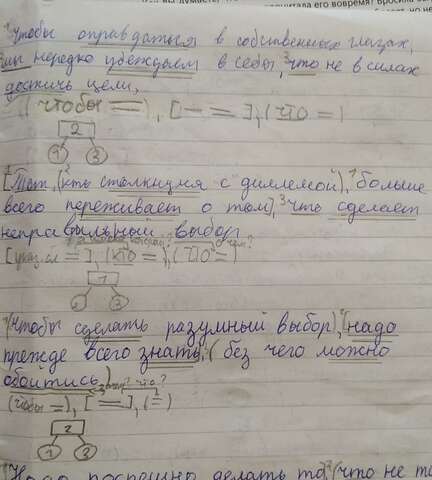 читала его вовремя? Бросила бы
¹Чтобы оправдаться в собственных глазах,
²мы нередко убеждаем в себя, ³что не в силах
достичь цели,
(чтобы =), [— =], (что =)
2
1 3
[¹Тот, (²кто столкнулся с диллемой), ¹больше
всего переживает о том], ³что сделает
неправильный выбор
[указ.сл =], (кто =), (что =)
1
2 3
¹(Чтобы сделать разумный выбор), ²[надо
прежде всего знать, ³(без чего можно
обойтись)
что?
(чтобы =), [=], (=)
2
1 3
¹Надо поспешно делать то, ²(что не